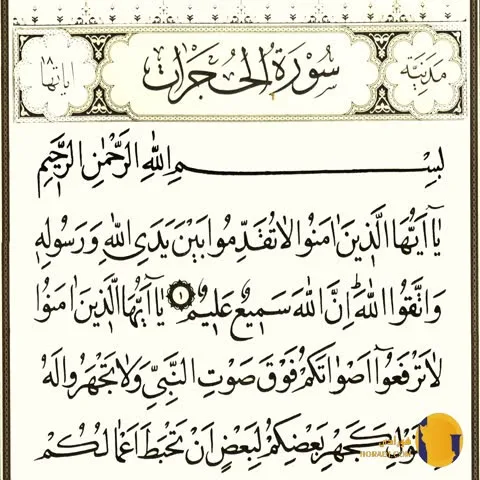 مدنیّة سُورَةُ الْحُجُرَات ایاتها ۱۸
بِسْمِ اللّٰهِ الرَّحْمٰنِ الرَّحِیمِ
یٰٓا اَیُّهَا الَّذِینَ اٰمَنُوا لَا تُقَدِّمُوا بَیْنَ یَدَیِ اللّٰهِ وَ رَسُولِهٖ
وَ اتَّقُوا اللّٰهَ ؕ اِنَّ اللّٰهَ سَمِیعٌ عَلِیمٌ ۱ یٰٓا اَیُّهَا الَّذِینَ اٰمَنُوا
لَا تَرْفَعُوٓا اَصْوَاتَكُمْ فَوْقَ صَوْتِ النَّبِیِّ وَ لَا تَجْهَرُوا لَهُ
كَجَهْرِ بَعْضِكُمْ لِبَعْضٍ اَنْ تَحْبَطَ اَعْمَالُكُمْ